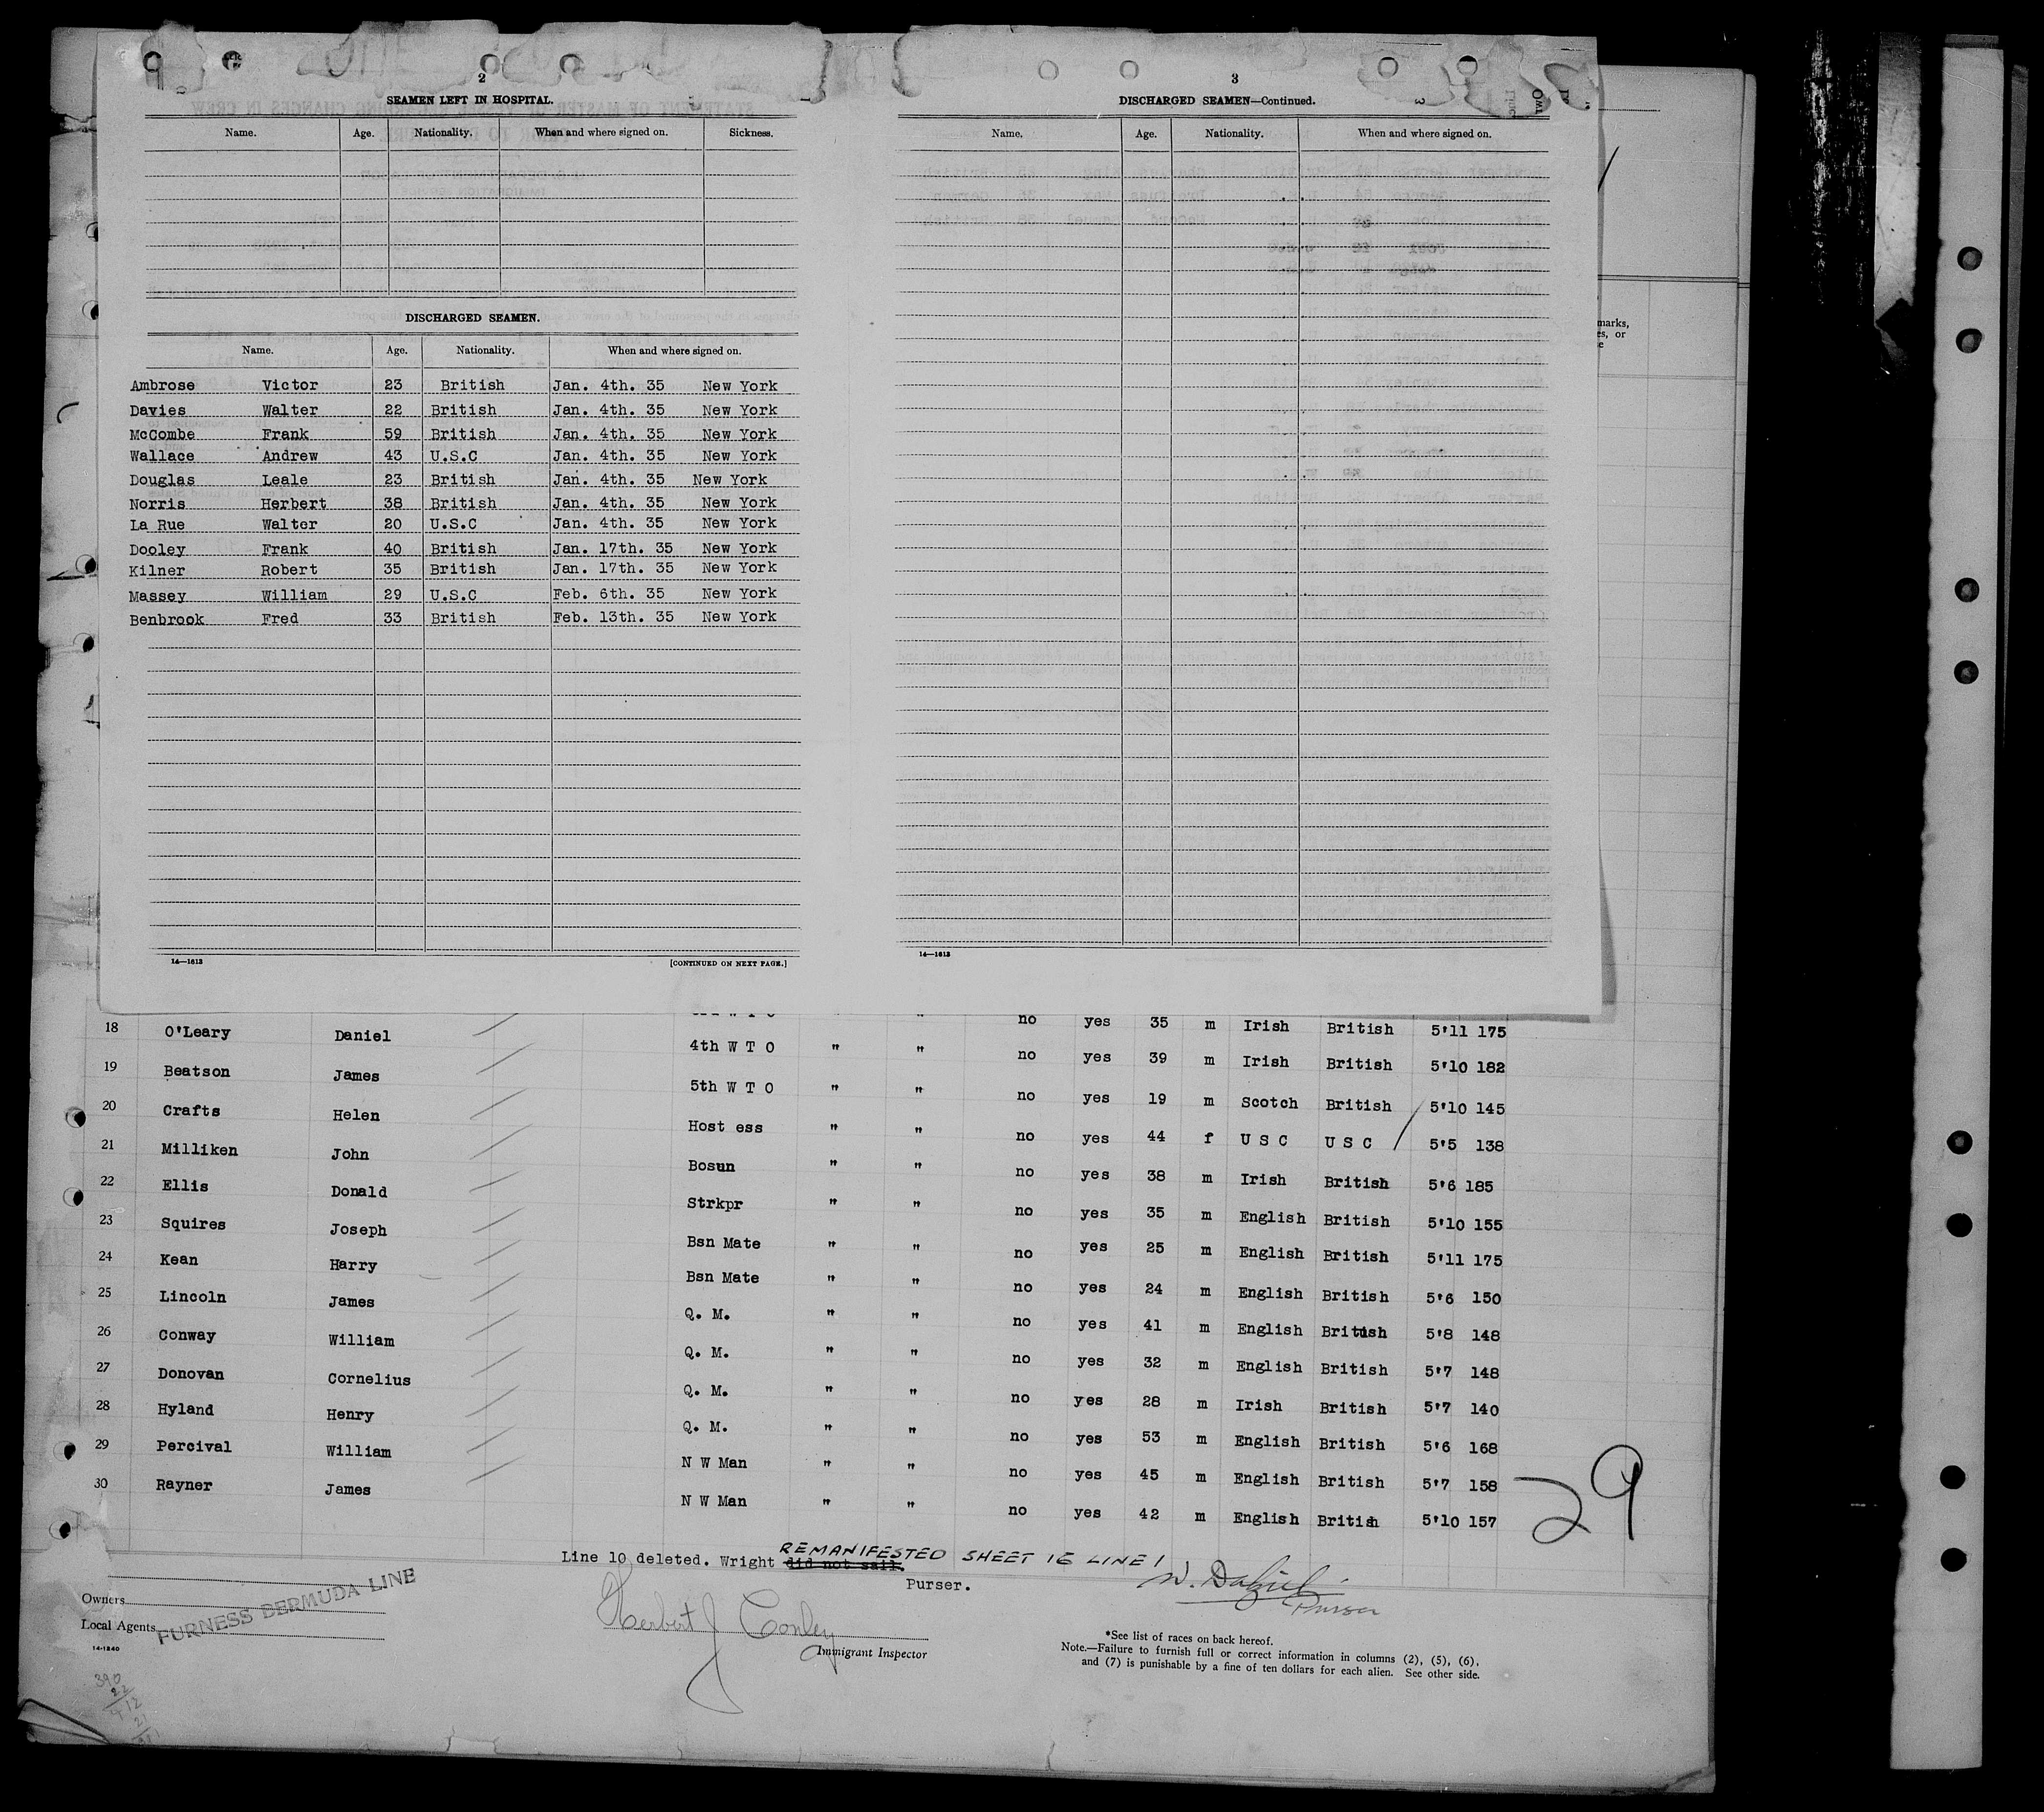 2
SEAMEN LEFT IN HOSPITAL.
Name. Age. Nationality. When and where signed on. Sickness.
DISCHARGED SEAMEN.
Name. Age. Nationality. When and where signed on.
Ambrose Victor 23 British Jan. 4th. 35 New York
Davies Walter 22 British Jan. 4th. 35 New York
McCombe Frank 59 British Jan. 4th. 35 New York
Wallace Andrew 43 U.S.C Jan. 4th. 35 New York
Douglas Leale 23 British Jan. 4th. 35 New York
Norris Herbert 38 British Jan. 4th. 35 New York
La Rue Walter 20 U.S.C Jan. 4th. 35 New York
Dooley Frank 40 British Jan. 17th. 35 New York
Kilner Robert 35 British Jan. 17th. 35 New York
Massey William 29 U.S.C Feb. 6th. 35 New York
Benbrook Fred 33 British Feb. 13th. 35 New York
14—1613 [CONTINUED ON NEXT PAGE.]
3
DISCHARGED SEAMEN—Continued.
Name. Age. Nationality. When and where signed on.
14—1613
marks,
es, or
e
" " no yes 35 m Irish British 5'11 175
18 O'Leary Daniel 4th W T O " " no yes 39 m Irish British 5'10 182
19 Beatson James 5th W T O " " no yes 19 m Scotch British 5'10 145
20 Crafts Helen Host ess " " no yes 44 f U S C U S C 5'5 138
21 Milliken John Bosun " " no yes 38 m Irish British 5'6 185
22 Ellis Donald Strkpr " " no yes 35 m English British 5'10 155
23 Squires Joseph Bsn Mate " " no yes 25 m English British 5'11 175
24 Kean Harry Bsn Mate " " no yes 24 m English British 5'6 150
25 Lincoln James Q. M. " " no yes 41 m English British 5'8 148
26 Conway William Q. M. " " no yes 32 m English British 5'7 148
27 Donovan Cornelius Q. M. " " no yes 28 m Irish British 5'7 140
28 Hyland Henry Q. M. " " no yes 53 m English British 5'6 168
29 Percival William N W Man " " no yes 45 m English British 5'7 158
30 Rayner James N W Man " " no yes 42 m English British 5'10 157
29
REMANIFESTED SHEET 16 LINE 1
Line 10 deleted. Wright did not sail.
Purser.
Purser
Owners
Local Agents
FURNESS BERMUDA LINE
14-1240
Herbert J Conley
Immigrant Inspector
*See list of races on back hereof.
Note.—Failure to furnish full or correct information in columns (2), (5), (6),
and (7) is punishable by a fine of ten dollars for each alien. See other side.
390